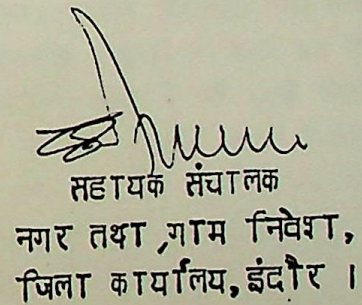 सहायक संचालक
नगर तथा ,गाम निवेश,
जिला कार्यालय, इंदौर ।